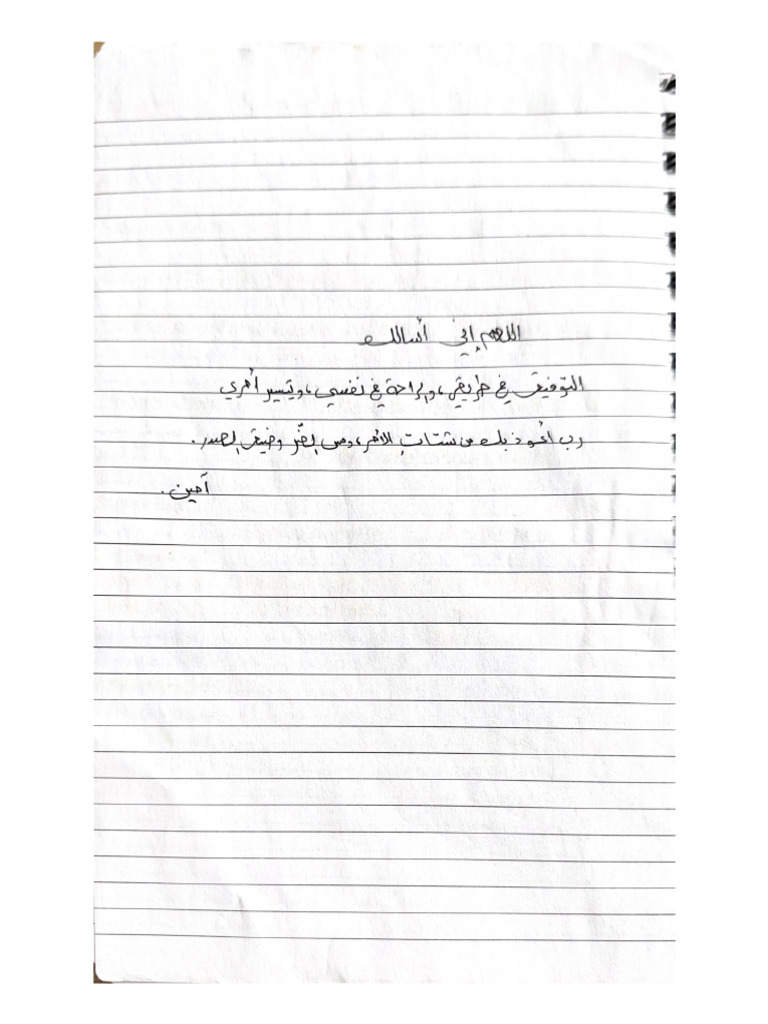 اللهم إني أسالك
التوفيق في طريقي، والراحة في نفسي، وتيسير أمري
رب أعوذ بك من شتات الأمر، ومن الضّر وضيق الصدر.
آمين.